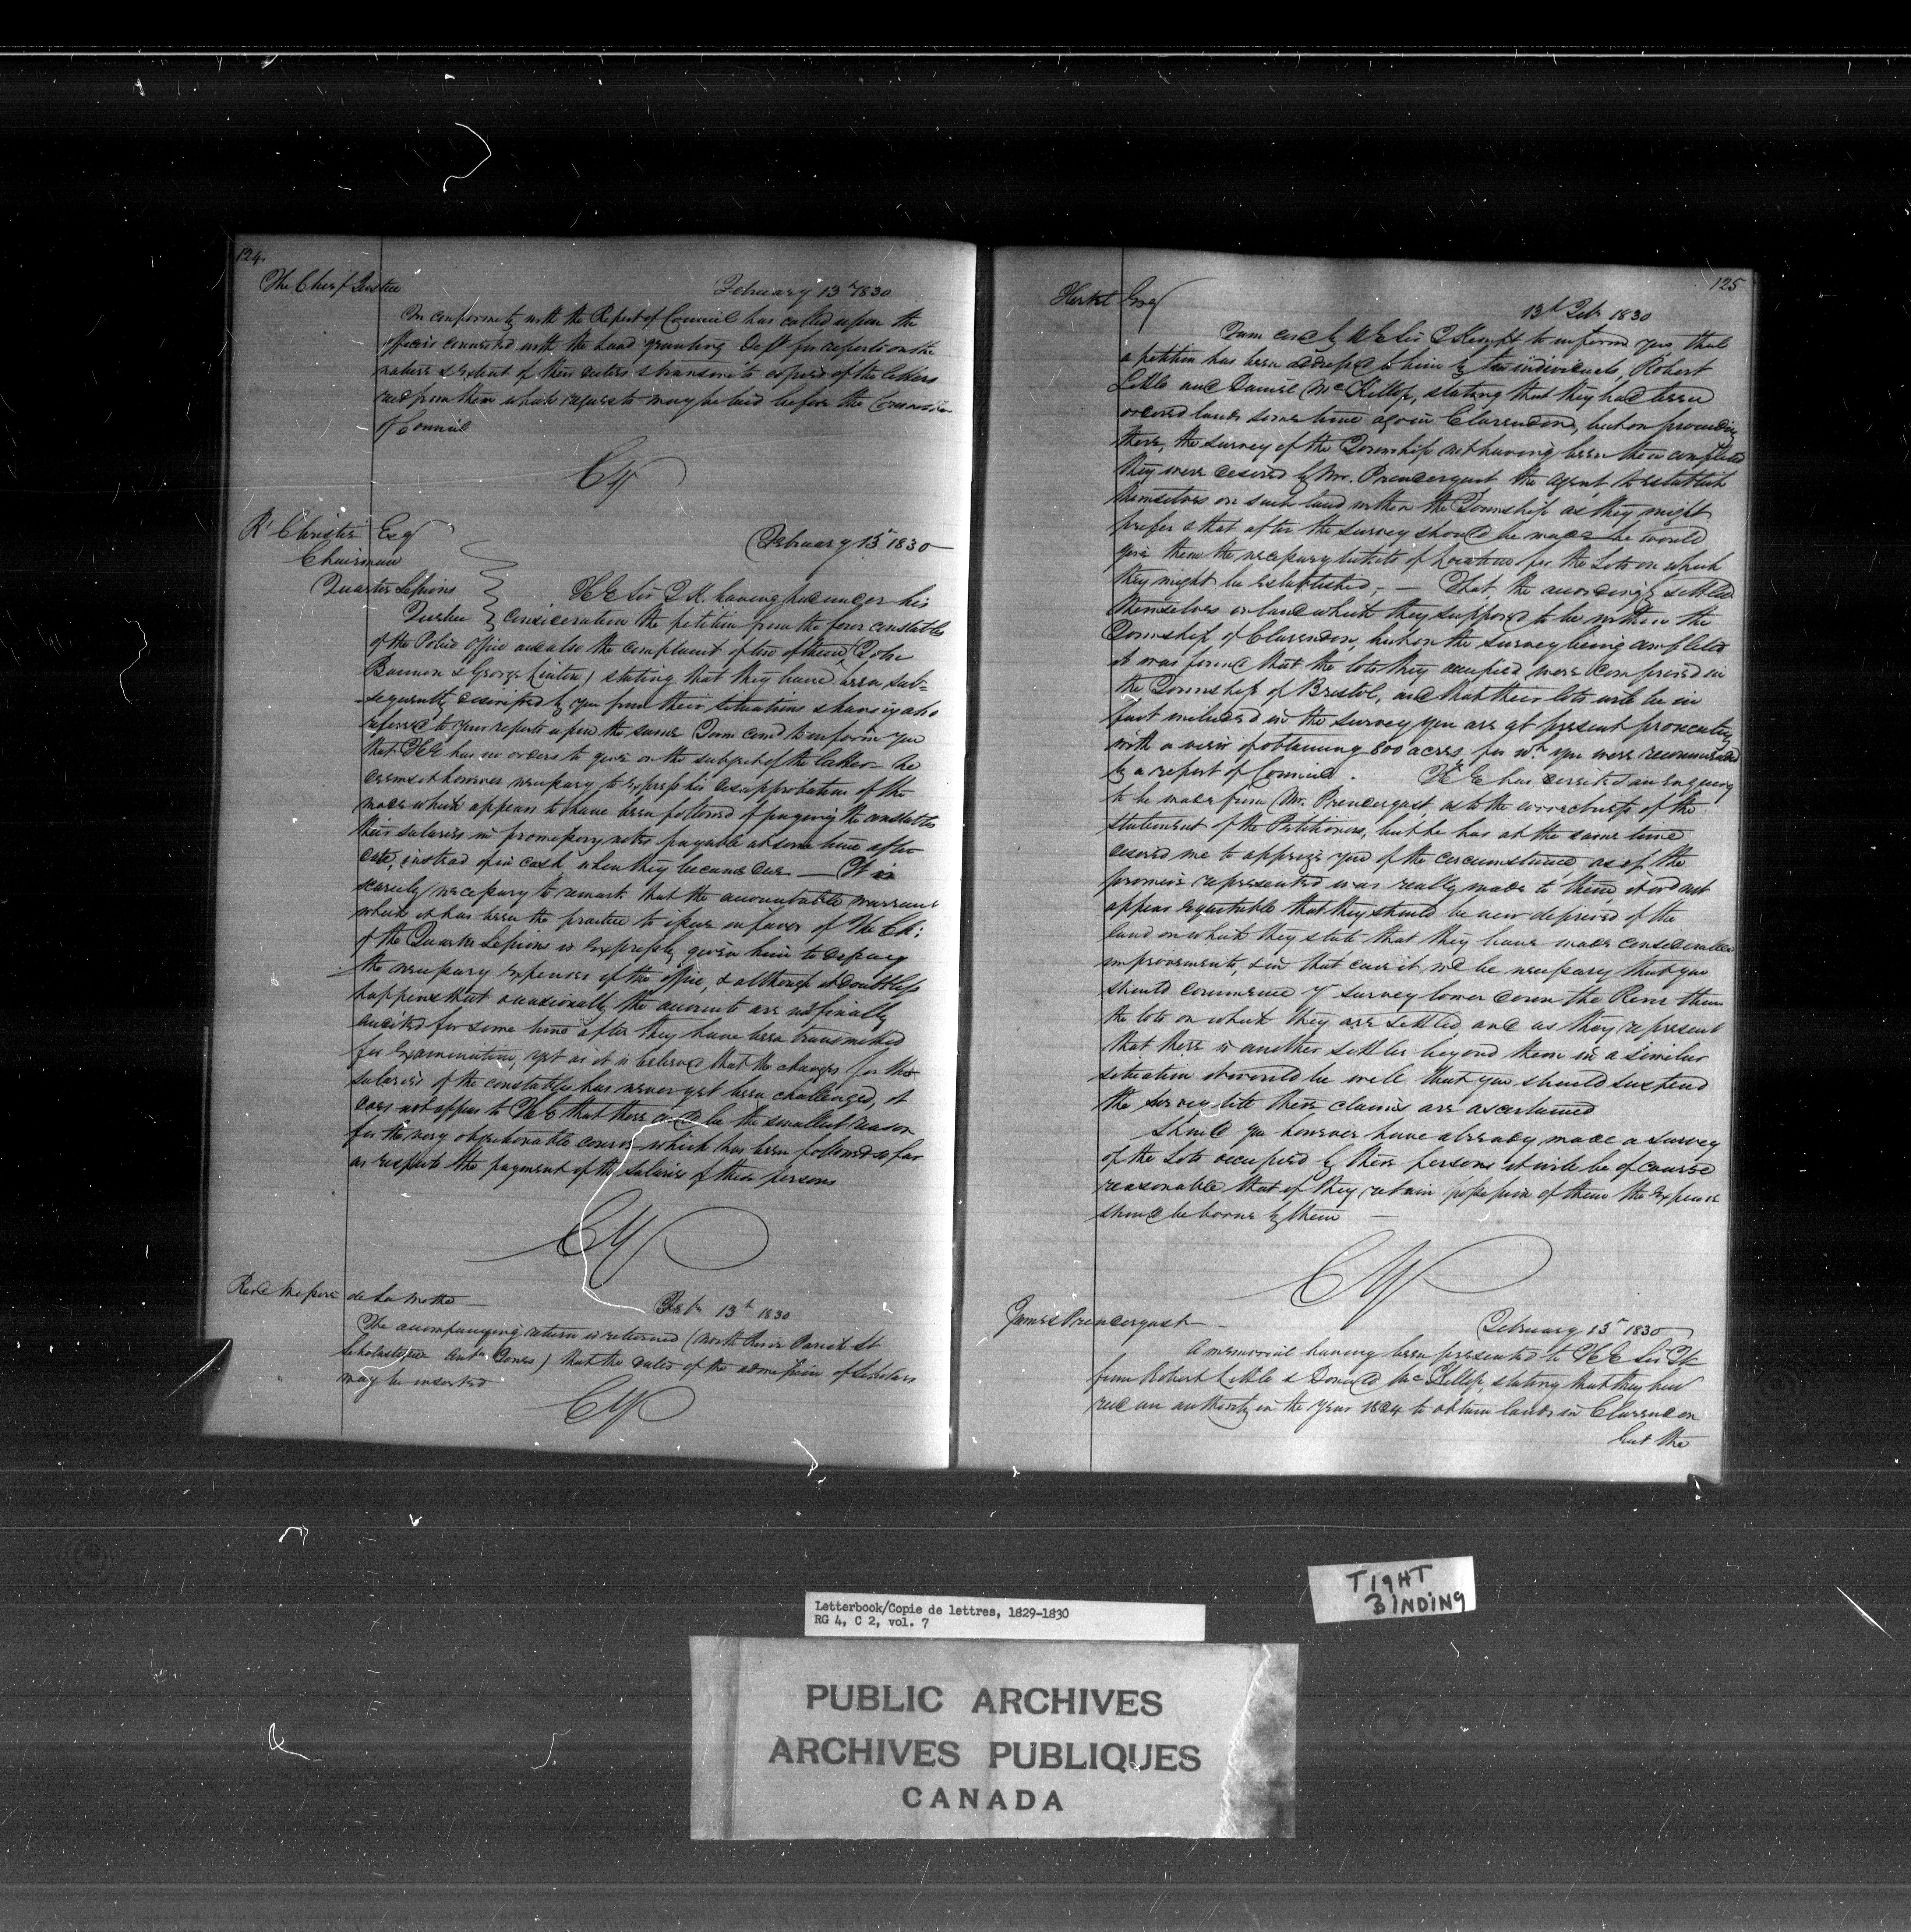 124.
The Chief Justice
February 13th 1830
In conformity with the Report of Council has called upon the
officers connected with the Land granting Dept for reports on the
nature & extent of their duties & transmits copies of the letters
recd from them which requests may be laid before the Committee
of Council
CY
Rt Christie Esq
Chairman
Quarter Sessions
Quebec
February 13 1830
H E Sir J K. having had under his
consideration the petition from the four constables
of the Police Office and also the complaint of two of them (John
Bannon & George Linton) stating that they have been sub-
sequently dismissed by you from their situations & having also
referred to your reports upon the same I am comd to inform you
that H E has no orders to give on the subject of the latter – he
deems it however necessary to express his disapprobation of the
mode which appears to have been followed of paying the constables
their salaries in promissory notes payable at some time after
date, instead of in cash when they became due — It is
scarcely necessary to remark that the accountable warrant
which it has been the practice to issue in favor of The Ch:
of the Quarter Sessions is expressly given him to defray
the necessary expenses of the office, & although it doubtless
happens that occasionally the accounts are not finally
audited for some time after they have been transmitted
for examination, yet as it is believed that the charges for the
salaries of the constables has never yet been challenged, it
does not appear to H E that there could be the smallest reason
for the very objectionable course which has been followed so far
as respects the payment of the salaries of these persons
CY
Revd Messire de La Mothe –
Feby 13th 1830
The accompanying return is returned (North River Parish St
Scholastique Antn Jones) that the dates of the admission of Scholars
may be inserted
CY
125
Hertel Esq
13th Feby 1830
I am comd by H E Sir J Kempt to inform you that
a petition has been addressed to him by two individuals, Robert
Little and Daniel McKillop, stating that they had been
ordered lands some time ago in Clarendon, but on proceeding
there, the survey of the Township not having been then completed
they were desired by Mr. Prendergast the agent to establish
themselves on such land within the Township as they might
prefer & that after the survey should be made he would
give them the necessary tickets of Location for the Lots on which
they might be established, — That the accordingly settled
themselves on land which they supposed to be within the
Township of Clarendon, but on the survey being completed
it was found that the lots they occupied were comprised in
the Township of Bristol, and that their lots will be in
fact included in the survey you are at present prosecuting
with a view of obtaining 800 acres for wh. you were recommended
by a report of Council. H E has directed an enquiry
to be made from Mr. Prendergast as to the correctness of the
statement of the Petitioners, but he has at the same time
desired me to apprize you of the circumstance as if the
promise represented was really made to them, it wd not
appear equitable that they should be now deprived of the
land on which they state that they have made considerable
improvements, & in that case it wd be necessary that you
should commence yr survey lower down the River than
the lots on which they are settled and as they represent
that there is another settler beyond them in a similar
situation it would be well that you should suspend
the survey till their claims are ascertained
Should you however have already made a survey
of the Lots occupied by these persons it will be of course
reasonable that if they retain possession of them the expense
should be borne by them —
CY
James Prendergast –
February 13th 1830
A memorial having been presented to H E Sir JK
from Robert Little & Donald McKillop, stating that they had
recd an authority in the year 1824 to obtain lands in Clarendon
but the
Letterbook/Copie de lettres, 1829-1830
RG 4, C 2, vol. 7
TIGHT
BINDING
PUBLIC ARCHIVES
ARCHIVES PUBLIQUES
CANADA